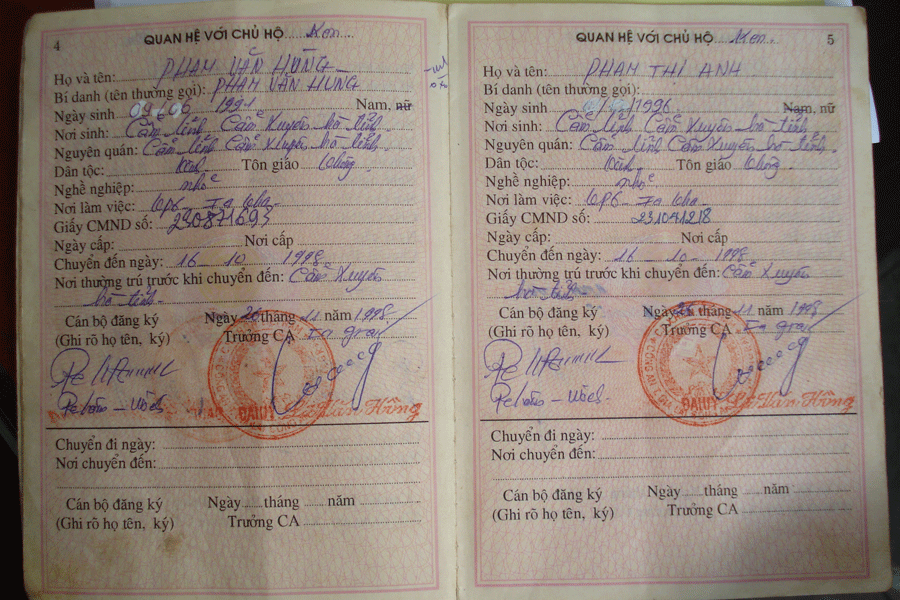 4
QUAN HỆ VỚI CHỦ HỘ Con
Họ và tên: PHẠM VĂN HÙNG
Bí danh (tên thường gọi): PHẠM VĂN HÙNG
Ngày sinh 1991 Nam, nữ
Nơi sinh: Cẩm Lĩnh Cẩm Xuyên Hà Tĩnh
Nguyên quán: Cẩm Lĩnh Cẩm Xuyên Hà Tĩnh
Dân tộc: Kinh Tôn giáo Không
Nghề nghiệp: nhỏ
Nơi làm việc:
Giấy CMND số: 230871693
Ngày cấp: Nơi cấp
Chuyển đến ngày: 16 - 10 - 1998
Nơi thường trú trước khi chuyển đến: Cẩm Xuyên
Hà Tĩnh
Cán bộ đăng ký Ngày tháng 11 năm 1998
(Ghi rõ họ tên, ký) Trưởng CA Ia grai
ĐẠI ÚY Văn Hồng
Chuyển đi ngày:
Nơi chuyển đến:
Cán bộ đăng ký Ngày tháng năm
(Ghi rõ họ tên, ký) Trưởng CA
5
QUAN HỆ VỚI CHỦ HỘ Con
Họ và tên: PHẠM THỊ ANH
Bí danh (tên thường gọi):
Ngày sinh 1996 Nam, nữ
Nơi sinh: Cẩm Lĩnh Cẩm Xuyên Hà Tĩnh
Nguyên quán: Cẩm Lĩnh Cẩm Xuyên Hà Tĩnh
Dân tộc: Kinh Tôn giáo Không
Nghề nghiệp: nhỏ
Nơi làm việc:
Giấy CMND số: 231041218
Ngày cấp: Nơi cấp
Chuyển đến ngày: 16 - 10 - 1998
Nơi thường trú trước khi chuyển đến: Cẩm Xuyên
Hà Tĩnh
Cán bộ đăng ký Ngày tháng 11 năm 1998
(Ghi rõ họ tên, ký) Trưởng CA Ia grai
ĐẠI ÚY Văn Hồng
Chuyển đi ngày:
Nơi chuyển đến:
Cán bộ đăng ký Ngày tháng năm
(Ghi rõ họ tên, ký) Trưởng CA